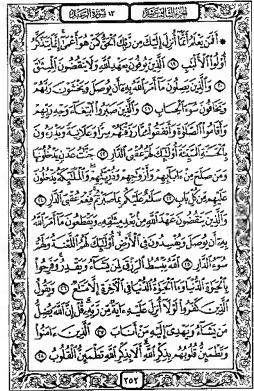 الجزء الثالث عشر ١٣ سورة الرعد
۞ أَفَمَن يَعْلَمُ أَنَّمَا أُنزِلَ إِلَيْكَ مِن رَّبِّكَ الْحَقُّ كَمَنْ هُوَ أَعْمَىٰ إِنَّمَا يَتَذَكَّرُ
أُولُوا الْأَلْبَابِ ١٩ الَّذِينَ يُوفُونَ بِعَهْدِ اللَّهِ وَلَا يَنقُضُونَ الْمِيثَاقَ
٢٠ وَالَّذِينَ يَصِلُونَ مَا أَمَرَ اللَّهُ بِهِ أَن يُوصَلَ وَيَخْشَوْنَ رَبَّهُمْ
وَيَخَافُونَ سُوءَ الْحِسَابِ ٢١ وَالَّذِينَ صَبَرُوا ابْتِغَاءَ وَجْهِ رَبِّهِمْ
وَأَقَامُوا الصَّلَاةَ وَأَنفَقُوا مِمَّا رَزَقْنَاهُمْ سِرًّا وَعَلَانِيَةً وَيَدْرَءُونَ
بِالْحَسَنَةِ السَّيِّئَةَ أُولَٰئِكَ لَهُمْ عُقْبَى الدَّارِ ٢٢ جَنَّاتُ عَدْنٍ يَدْخُلُونَهَا
وَمَن صَلَحَ مِنْ آبَائِهِمْ وَأَزْوَاجِهِمْ وَذُرِّيَّاتِهِمْ وَالْمَلَائِكَةُ يَدْخُلُونَ
عَلَيْهِم مِّن كُلِّ بَابٍ ٢٣ سَلَامٌ عَلَيْكُم بِمَا صَبَرْتُمْ فَنِعْمَ عُقْبَى الدَّارِ ٢٤
وَالَّذِينَ يَنقُضُونَ عَهْدَ اللَّهِ مِن بَعْدِ مِيثَاقِهِ وَيَقْطَعُونَ مَا أَمَرَ اللَّهُ
بِهِ أَن يُوصَلَ وَيُفْسِدُونَ فِي الْأَرْضِ أُولَٰئِكَ لَهُمُ اللَّعْنَةُ وَلَهُمْ
سُوءُ الدَّارِ ٢٥ اللَّهُ يَبْسُطُ الرِّزْقَ لِمَن يَشَاءُ وَيَقْدِرُ وَفَرِحُوا
بِالْحَيَاةِ الدُّنْيَا وَمَا الْحَيَاةُ الدُّنْيَا فِي الْآخِرَةِ إِلَّا مَتَاعٌ ٢٦ وَيَقُولُ
الَّذِينَ كَفَرُوا لَوْلَا أُنزِلَ عَلَيْهِ آيَةٌ مِّن رَّبِّهِ قُلْ إِنَّ اللَّهَ يُضِلُّ
مَن يَشَاءُ وَيَهْدِي إِلَيْهِ مَنْ أَنَابَ ٢٧ الَّذِينَ آمَنُوا
وَتَطْمَئِنُّ قُلُوبُهُم بِذِكْرِ اللَّهِ أَلَا بِذِكْرِ اللَّهِ تَطْمَئِنُّ الْقُلُوبُ ٢٨
٢٥٢